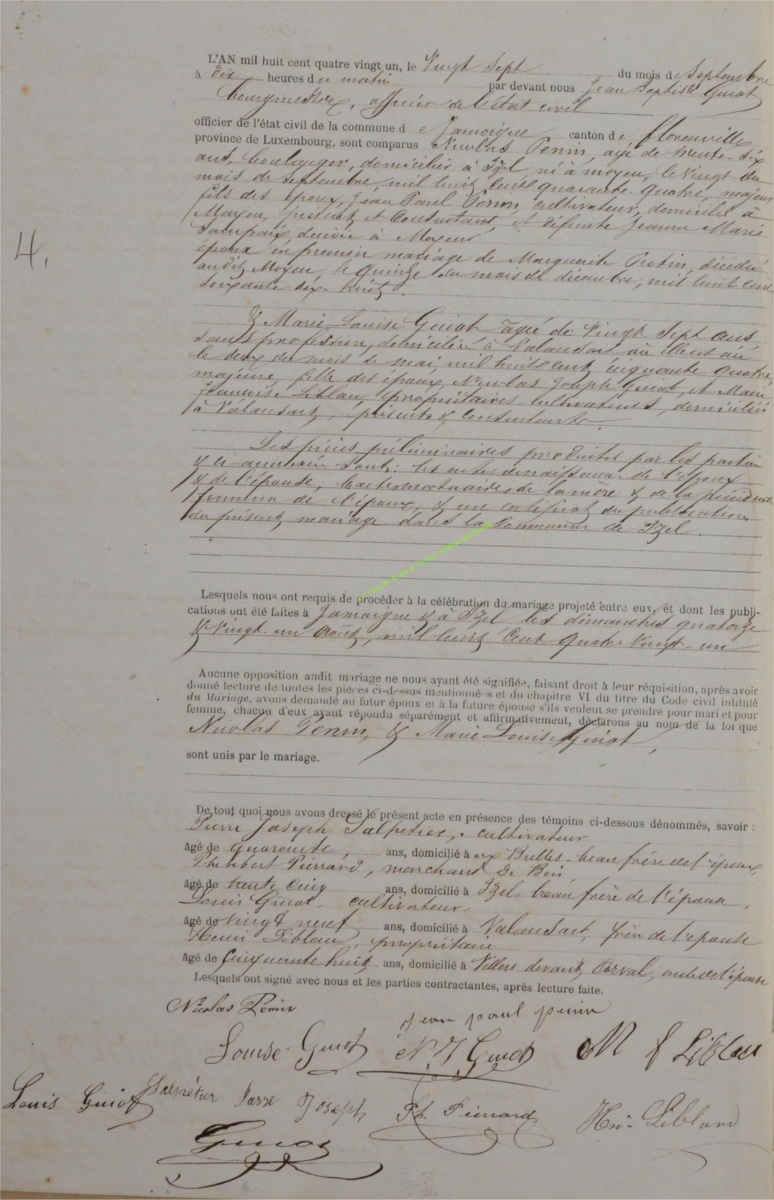 L'AN mil huit cent quatre vingt un, le Vingt Sept du mois de Septembre
à dix heures du matin par devant nous Jean Baptiste Guiot
bourgmestre, officier de l'état civil
officier de l'état civil de la commune de Jamoigne canton de Florenville
province de Luxembourg, sont comparus Nicolas Penin, age de trente-six
ans, boulanger, domicilié à Izel né à moyen, le vingt du
mois de septembre mil huit cent quarante quatre, majeur
fils des époux, Jean Paul Penin cultivateur, domicilié à
Moyen, présent et Consentant, et défunte Jeanne Marie
décédée à Moyen
époux en premier mariage de Marguerite décédée
audit Moyen, le quinze du mois de décembre, mil huit cent
soixante dix-huit.
4.
& Marie-Louise Guiot agée de Vingt Sept ans
sans profession, domiciliée à Valansart où elle est née
le deux du mois de mai, mil huit cent cinquante quatre
majeure fille des époux, Nicolas Joseph Guiot, et Marie
Françoise Leblan, propriétaires cultivateurs, domiciliés
à Valansart, présents & Consentants.
Les pièces préliminaires produites par les parties
& ci-annexées sont: les actes de naissance de l'époux
& de l'épouse; l'acte mortuaire de la mère & de la précédente
femme de l'époux, & un certificat de publication
du présent mariage dans la Commune de Izel.
Lesquels nous ont requis de procéder à la célébration du mariage projeté entre eux, et dont les publi-
cations ont été faites à Jamoigne & à Izel les dimanches quatorze
& Vingt-un Août, mil huit Cent quatre Vingt-un
Aucune opposition audit mariage ne nous ayant été signifiée, faisant droit à leur réquisition, après avoir
donné lecture de toutes les pièces ci-dessus mentionnées et du chapitre VI du titre du Code civil intitulé
du Mariage, avons demandé au futur époux et à la future épouse s'ils veulent se prendre pour mari et pour
femme, chacun d'eux ayant répondu séparément et affirmativement, déclarons au nom de la loi que
Nicolas Penin, & Marie Louise Guiot,
sont unis par le mariage.
De tout quoi nous avons dressé le présent acte en présence des témoins ci-dessous dénommés, savoir :
Pierre Joseph Salpetier, cultivateur
âgé de quarante ans, domicilié à aux Bulles - beau frère de l'époux,
Philibert Pierrard, marchand de Bois
âgé de trente cinq ans, domicilié à Izel beau frère de l'époux,
Louis Guiot cultivateur
âgé de vingt neuf ans, domicilié à Valansart, frère de l'épouse
Henri Leblanc, propriétaire
âgé de Cinquante huit ans, domicilié à Villers devant Orval, oncle de l'épouse
Lesquels ont signé avec nous et les parties contractantes, après lecture faite.
Nicolas Penin Jean paul penin
Louise Guiot N. J Guiot M f Leblan
Louis Guiot Salpétier Joseph Ph. Pierrard Hri Leblanc
Guiot